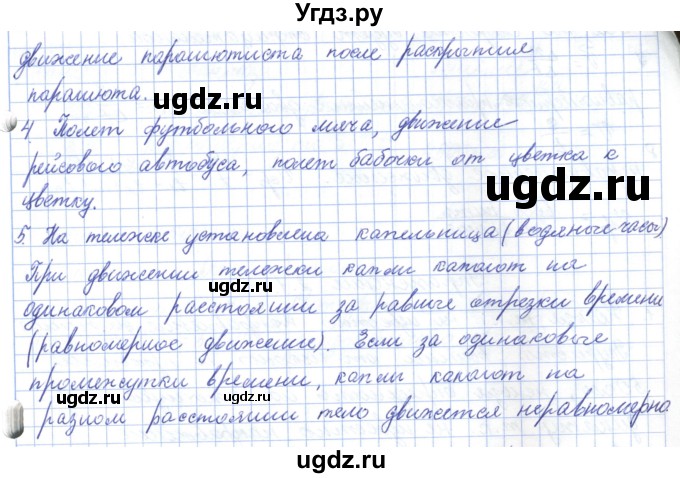 Угдз.ру
движение парашютиста после раскрытия
парашюта.
ugdz.ru
ugdz.ru
4 Полет футбольного мяча, движение
рейсового автобуса, полет бабочки от цветка к
ugdz.ru
цветку.
ugdz.ru
5. На тележке установлена капельница (водяные часы)
При движении тележки капли капают на
ugdz.ru
одинаковом расстоянии за равные отрезки времени
(равномерное движение). Если за одинаковые
промежутки времени, капли капают на
ugdz.ru
ugdz.ru
разном расстоянии тело движется неравномерно
ugdz.ru